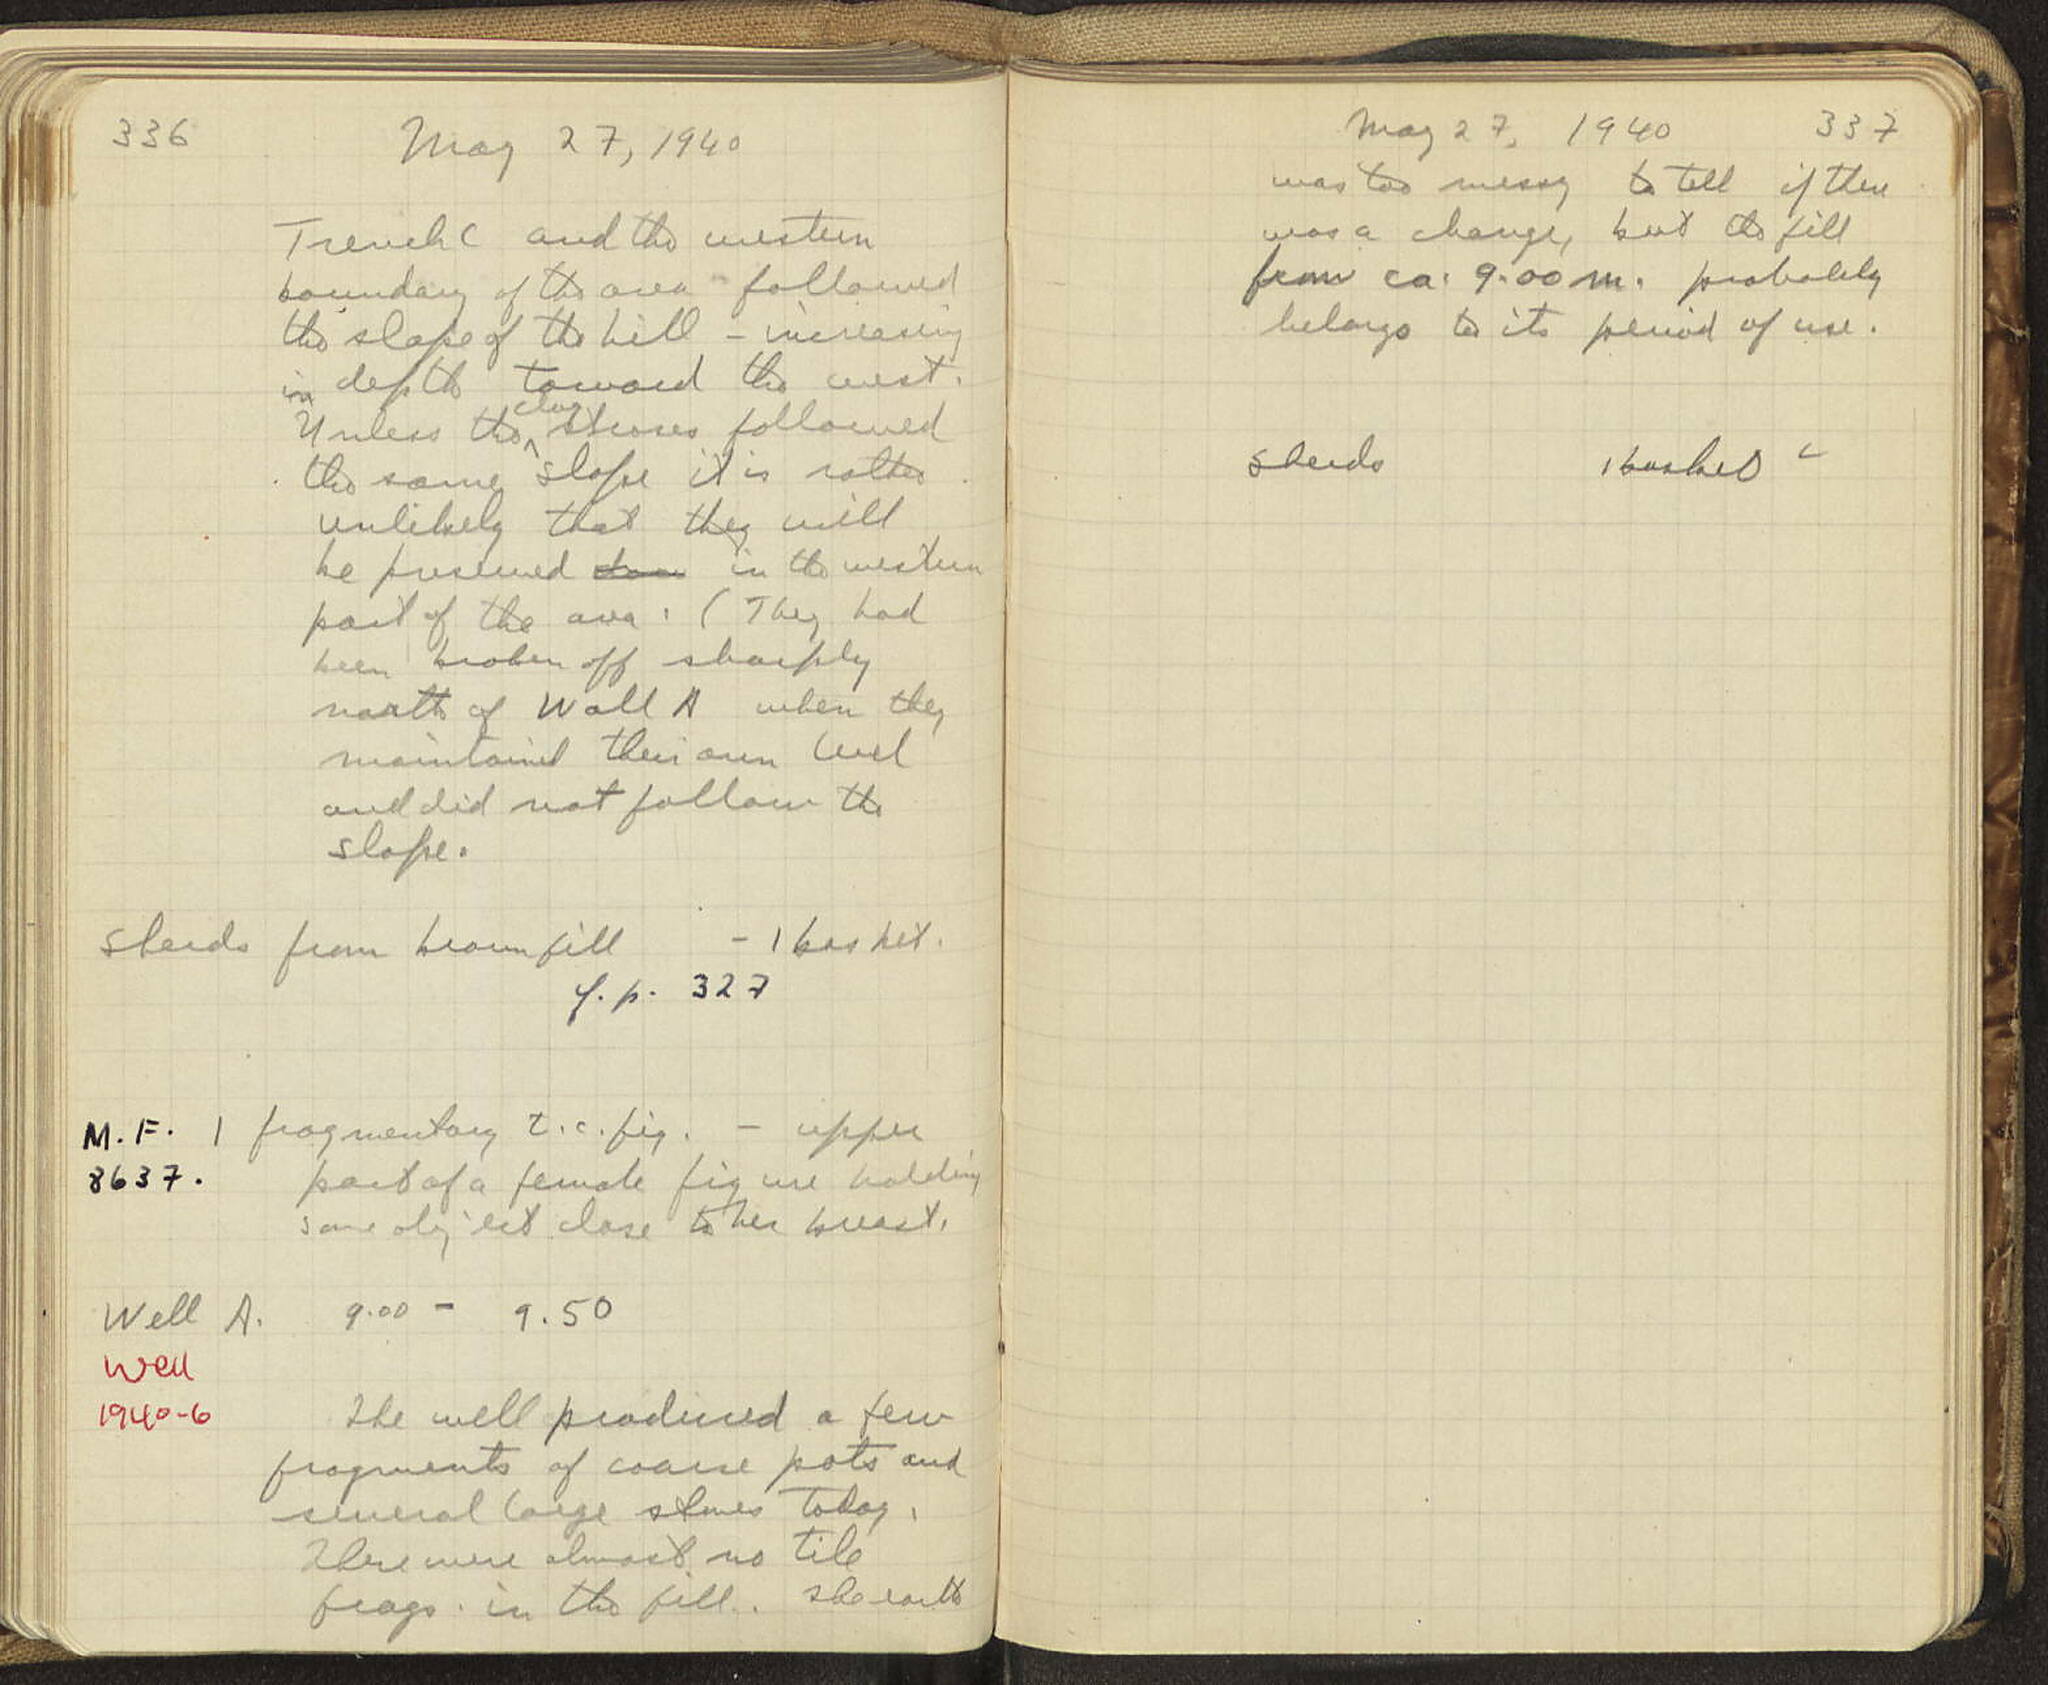 336
May 27, 1940
Trench C and the western
boundary of the area followed
the slope of the hill – increasing
in depth toward the west.
Unless the ^clay stroses followed
the same slope it is rather
unlikely that they will
be preserved in the western
part of the area. (They had
been broken off sharply
north of Wall A when they
maintained their own level
and did not follow the
slope.
Sherds from brown fill – 1 basket.
cf. p. 327
M.F. 1 fragmentary t.c. fig. – upper
8637. part of a female figure holding
some object close to her breast.
Well A. 9.00 – 9.50
Well
1940-6
The well produced a few
fragments of coarse pots and
several large stones today.
There were almost no tile
frags. in the fill. The earth
May 27, 1940 337
was too messy to tell if there
was a change, but the fill
from ca. 9.00 m. probably
belongs to its period of use.
Sherds 1 basket